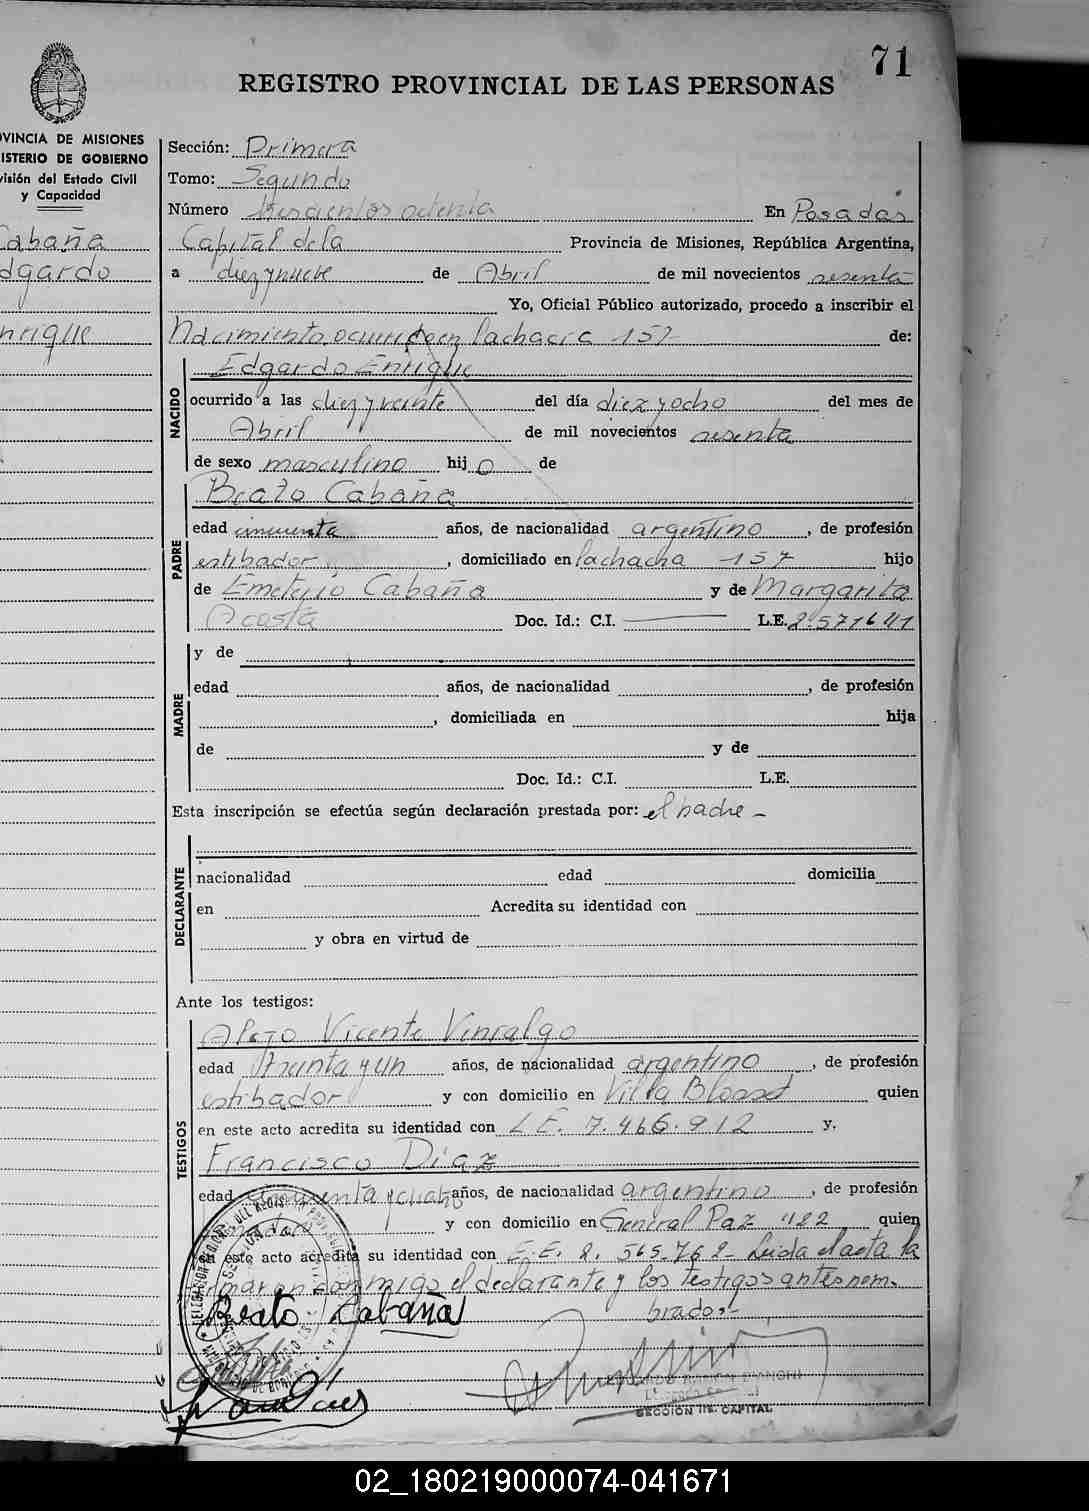 71
REGISTRO PROVINCIAL DE LAS PERSONAS
VINCIA DE MISIONES
ISTERIO DE GOBIERNO
isión del Estado Civil
y Capacidad
Cabaña
dgardo
nrique
Sección: Primera
Tomo: Segundo
Número trescientos ochenta En Posadas
Capital de la Provincia de Misiones, República Argentina,
a diez y nueve de Abril de mil novecientos sesenta
Yo, Oficial Público autorizado, procedo a inscribir el
Nacimiento ocurrido en la chacra 157- de:
NACIDO
Edgardo Enrique
ocurrido a las diez y veinte del día diez y ocho del mes de
Abril de mil novecientos sesenta
de sexo masculino hijo de
PADRE
Beato Cabaña
edad cincuenta años, de nacionalidad argentino, de profesión
estibador, domiciliado en la chacha 157 hijo
de Emeterio Cabaña y de Margarita
Acosta Doc. Id.: C.I. L.E. 2.571641
MADRE
y de
edad años, de nacionalidad , de profesión
, domiciliada en hija
de y de
Doc. Id.: C.I. L.E.
Esta inscripción se efectúa según declaración prestada por: el padre -
DECLARANTE
nacionalidad edad domicilia
en Acredita su identidad con
y obra en virtud de
Ante los testigos:
TESTIGOS
Vicente
edad treinta y un años, de nacionalidad argentino, de profesión
estibador y con domicilio en Villa Blosset quien
en este acto acredita su identidad con L.E. 7.466.912 y.
Francisco Diaz
edad cincuenta y cuatro años, de nacionalidad argentino, de profesión
y con domicilio en General Paz 422 quien
en este acto acredita su identidad con L.E. 2.565.762- Leida el acta la
firmaron conmigo el declarante y los testigos antes nom
brados-
Beato Cabaña
SECCION 1ra. CAPITAL
02_180219000074-041671